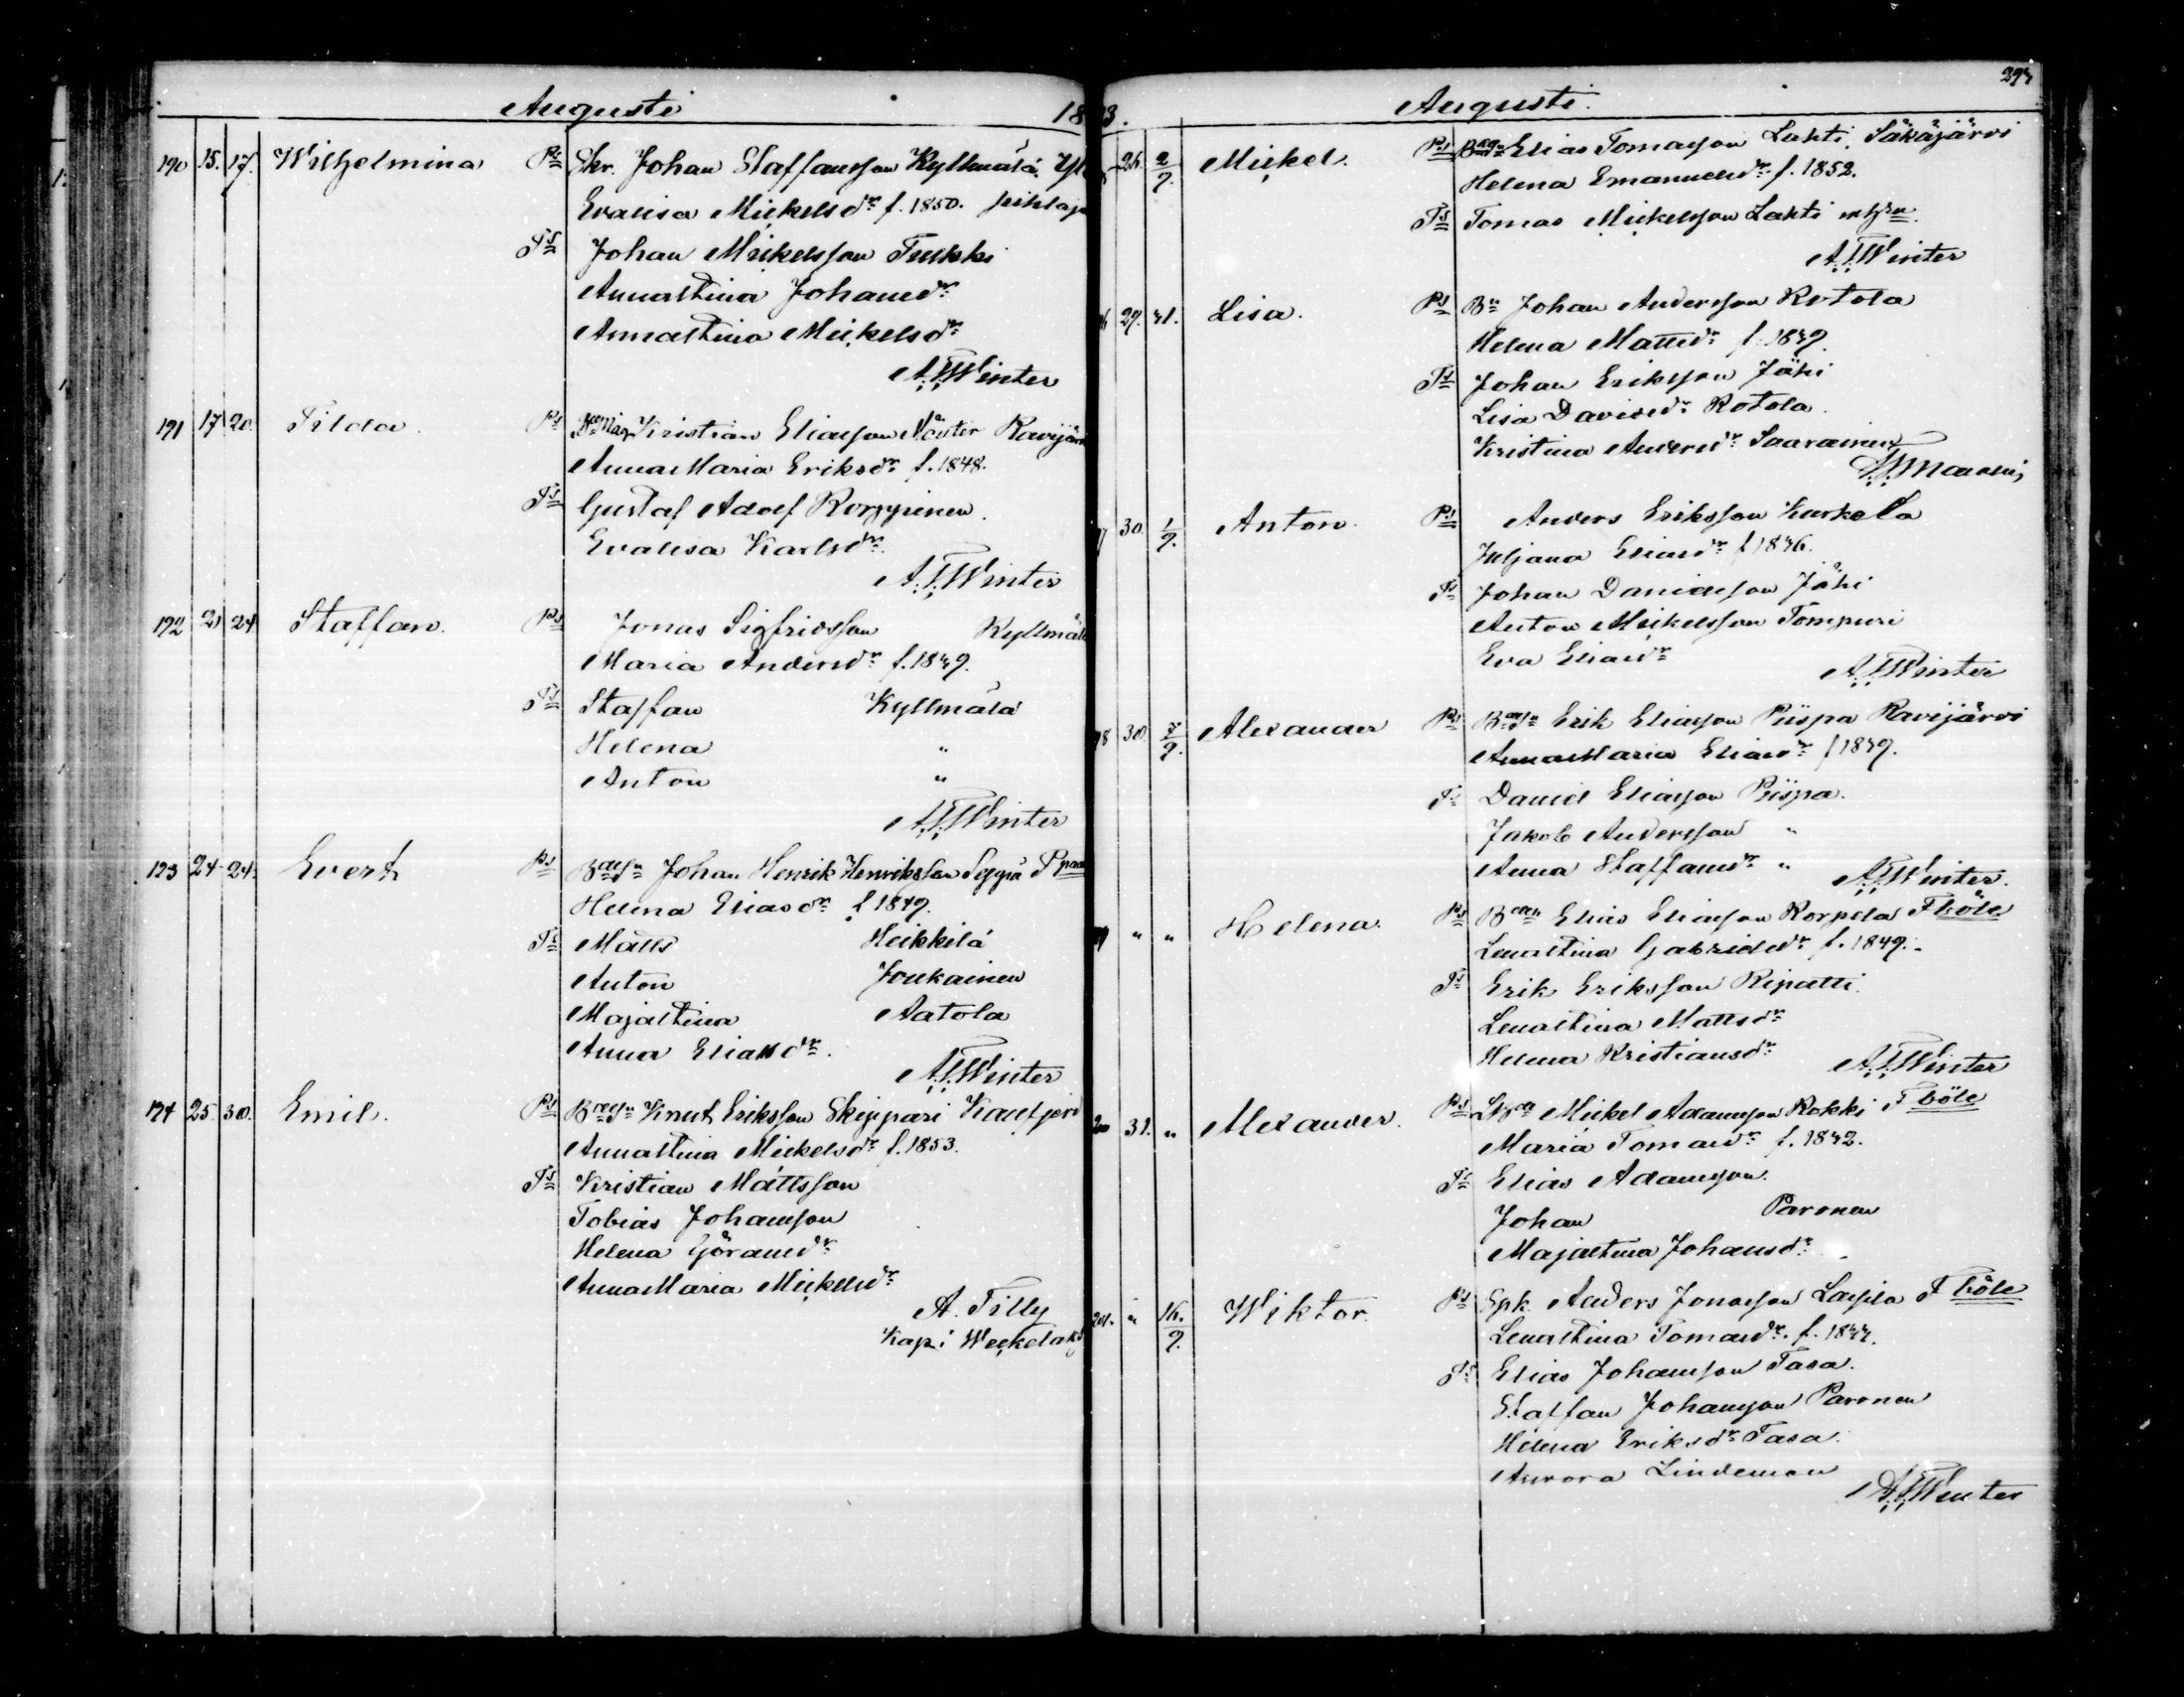 Augusti 18
190 15. 17. Wilhelmina Ps Skr. Johan Staffansson Kyllmälä
Evalisa Mickelsdr f. 1850.
Ts Johan Mickelsson Tukki
Annastina Johansdr
Annastina Mickelsdr
A.F.Winter
191 17 20 Tilda Ps Kristian Eliasson Ravijärvi
AnnaMaria Eriksdr f. 1848.
Ts Gustaf Adolf Rorppinen
Evalisa Karlsdr
A.F.Winter
192 21 24 Staffan. Ps Jonas Sigfridsson Kyllmälä
Maria Andersdr f. 1849.
Ts Staffan Kyllmälä
Helena "
Anton "
A.F.Winter
193 24 24. Evert Ps Johan Henrik Henriksson Seppä
Helena Eliasdr f 1849.
Ts Matts Heikkilä
Anton Joukainen
Majastina Aatola
Anna Eliasdr.
A.F.Winter
194 25. 30. Emil. Ps Knut Eriksson Skippari
Annastina Mickelsdr f. 1853.
Ts Kristian Mattsson
Tobias Johansson
Helena Göransdr
AnnaMaria Mickelsdr
A. Tilly
Kap. i Weckelaks
3. Augusti.
26. 2/9. Mickel. Ps Elias Tomasson Lahti, Säkäjärvi
Helena Emanuelsdr f. 1852.
Ts Tomas Mickelsson Lahti
A.F.Winter
29. 31. Lisa. Ps Bn Johan Andersson Rotola
Helena Mattsdr f. 1849.
Ts Johan Eriksson Jähi
Lisa Davidsdr Rotola.
Kristina Andersdr Saarainen
30. 1/9. Anton. Ps Anders Eriksson Kurkela
Juljana Eliasdr f 1846.
Ts Johan Danielsson Jähi
Anton Mickelsson Tompuri
Eva Eliasdr
A.F.Winter
30. 7/9. Alexander Ps Erik Eliasson Piispa Ravijärvi
AnnaMaria Eliasdr f 1849.
Ts David Eliasson Piispa.
Jakob Andersson "
Anna Staffansdr "
A.F.Winter.
" " Helena. Ps Elias Eliasson Korpela Fböle
Lenastina Gabrielsdr f. 1849.
Ts Erik Eriksson Ripatti.
Lenastina Mattsdr
Helena Kristiansdr
A.F.Winter
31. " Alexander. Ps Mickel Adamsson Kokki Fböle
Maria Tomasdr f. 1842.
Ts Elias Adamsson.
Johan Paronen
Majastina Johansdr
" 16./9. Wiktor. Ps Spk. Anders Jonasson Lapila Fböle
Lenastina Tomasdr. f. 1844.
Ts Elias Johansson Tasa.
Staffan Johansson Paronen
Helena Eriksdr Tasa.
Aurora Lindeman
A.F.Winter